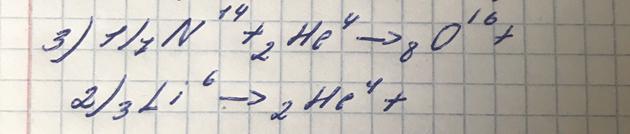 3) 1) ₇N¹⁴ + ₂He⁴ → ₈O¹⁶ +
2) ₃Li⁶ → ₂He⁴ +